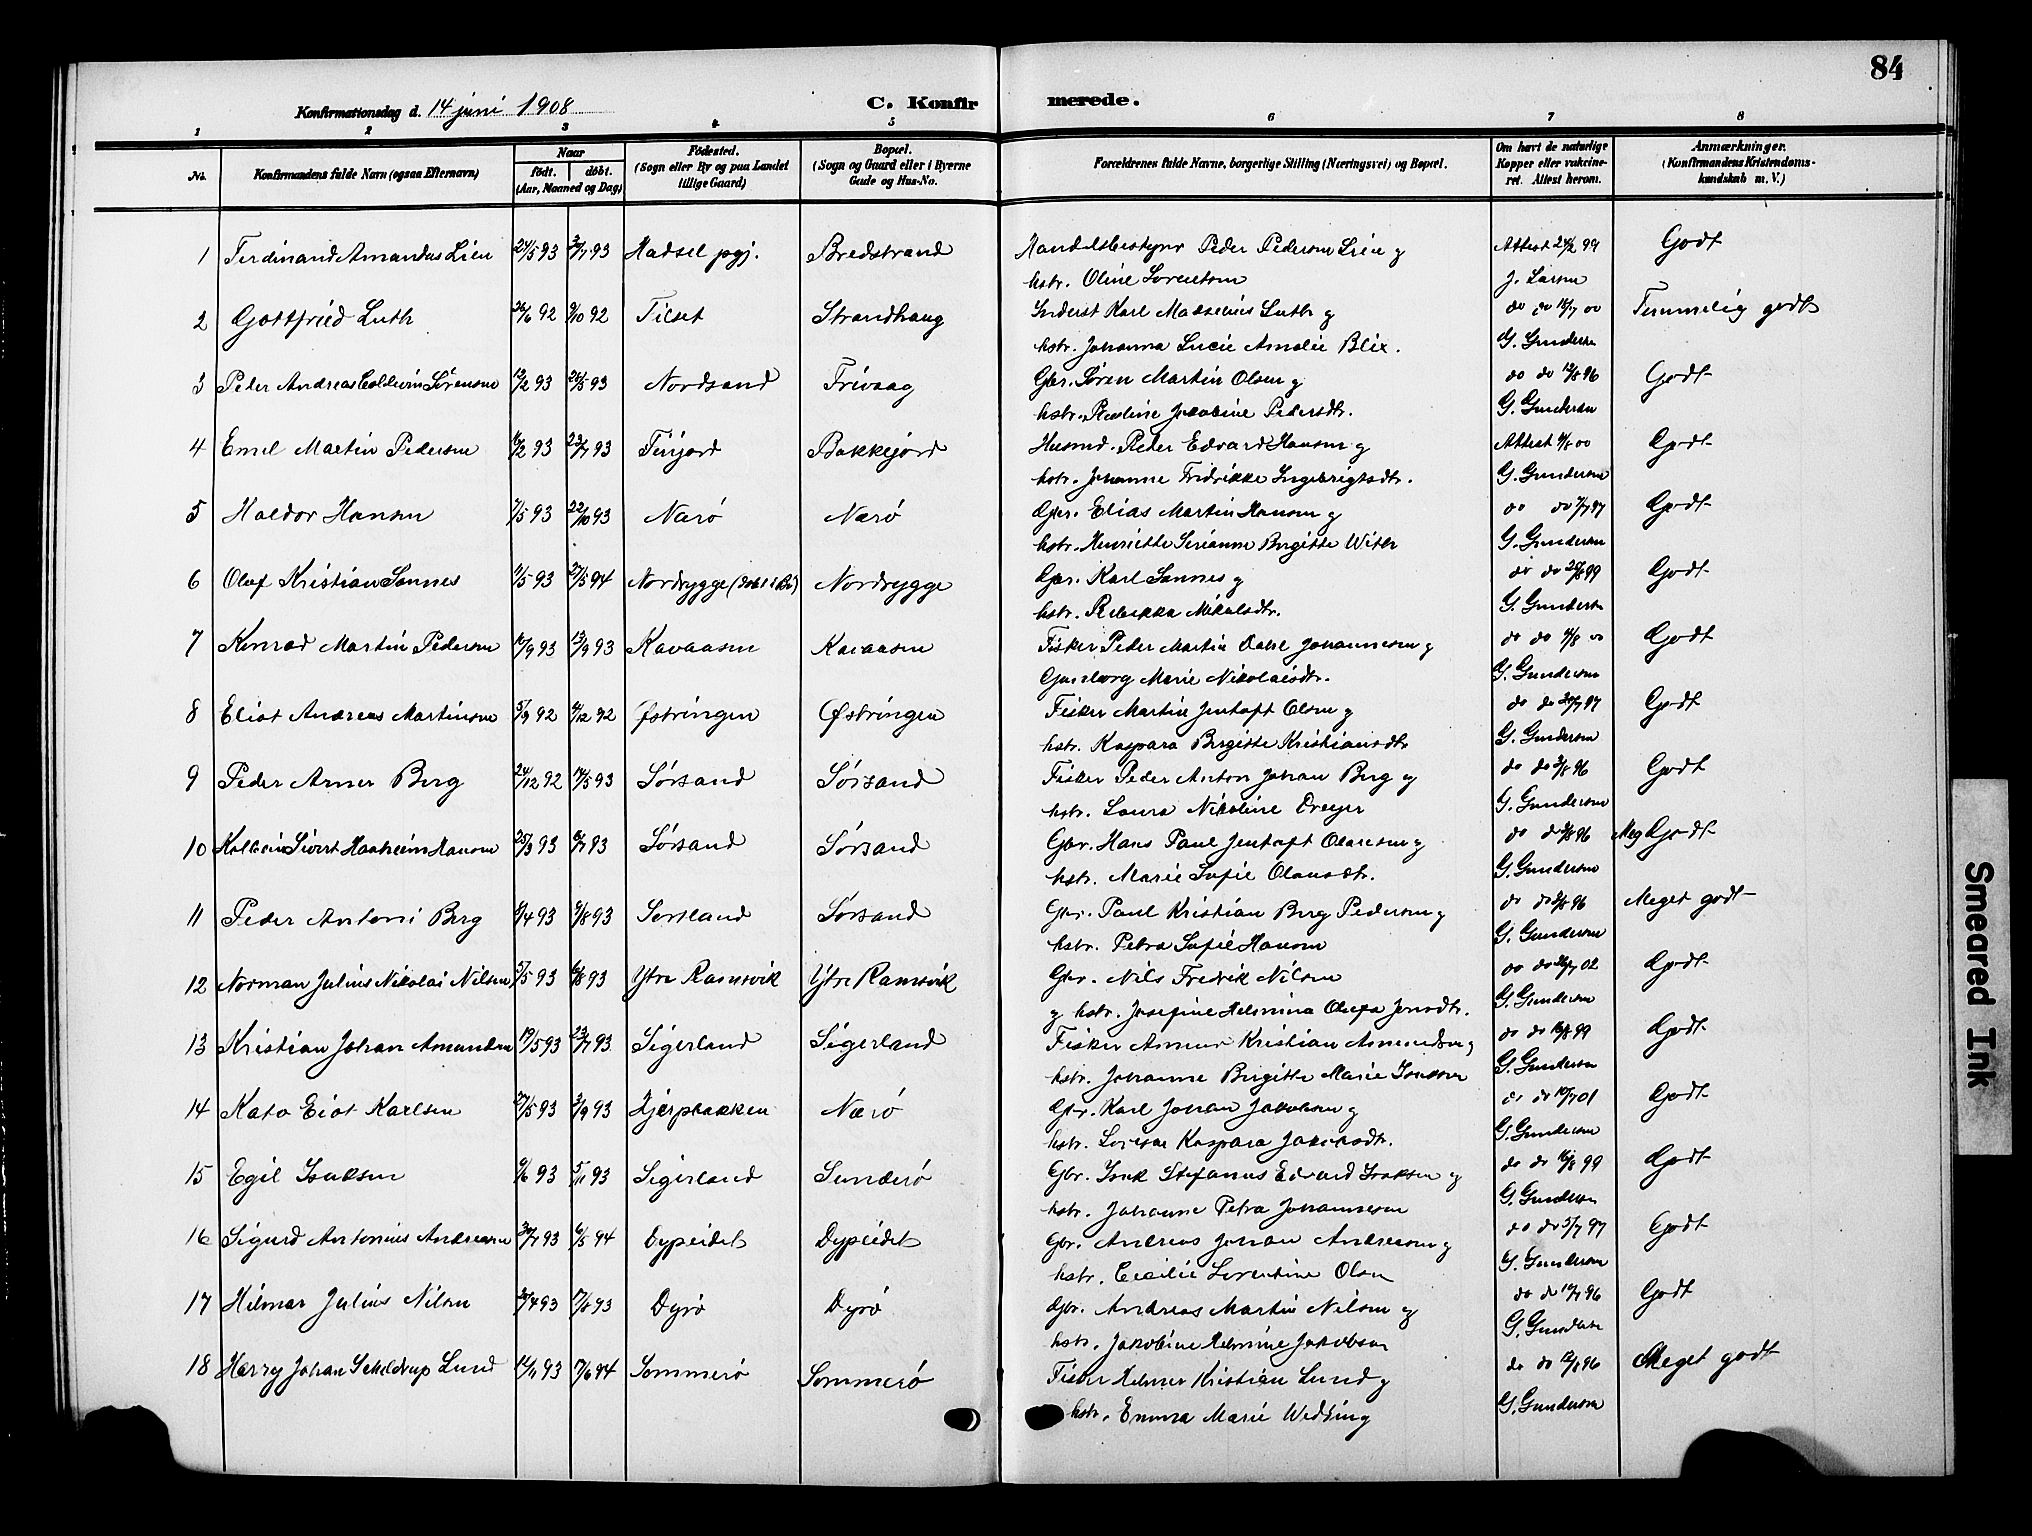 84
Konfirmationsdag d. 14 juni 1908
C. Konfir merede.
1 2 3 4 5 6 7 8
No. Konfirmandens fulde Navn (ogsaa Efternavn) Naar født. døbt. (Aar, Maaned og Dag) Fødested. (Sogn eller By og paa Landet tillige Gaard) Bopæl. (Sogn og Gaard eller i Byerne Gade og Hus-No. Forældrenes fulde Navne, borgerlige Stilling (Næringsvei) og Bopæl. Om havt de naturlige Kopper eller vakcineret. Attest herom. Anmærkninger. (Konfirmandens Kristendomskundskab m. V.)
1 Ferdinand Amandus Lien 24/5 93 93 Hadsel pgj. Bredstrand Handelsbestyrer Peder Pedersen Lien og Attest 24/2 99 Godt
hstr. Oline Lorentsen J. Larsen
2 Gottfried Luth 26/6 92 9/10 92 Tilset Strandhaug Inderst Karl Masselius Luth og do do 00 Temmelig godt
hstr. Johanna Lucie Amalie Blix. G. Gundersen
3 Peder Andreas Sørensen 12/2 93 93 Nordsand Frivaag Gbr. Søren Martin Olsen og do do 96 Godt
hstr. Pauline Jakobine Pedersdtr. G. Gundersen
4 Emil Martin Pedersen 16/2 93 23/7 93 Finjord Bakkejord Husmd. Peder Edvard Hansen og Attest 00 Godt
hstr. Johanne Fredrikke Ingebrigtsdtr. G. Gundersen
5 Haldor Hansen 7/5 93 22/10 93 Nærø Nærø Gbr. Elias Martin Hansen og do do 7/7 97 Godt
hstr. Henriette Birgitte With G. Gundersen
6 Olaf Kristian Sannes 1/5 93 27/5 94 Nordrygge Nordrygge Gbr. Karl Sannes og do do 99 Godt
hstr. Rebekka Mikalsdtr. G. Gundersen
7 Konrad Martin Pedersen 93 13/9 93 Kavaasen Kavaasen Fisker Peder Martin Johannesen og do do 00 Godt
Marie Nikolaisdtr. G. Gundersen
8 Eliot Andreas Martinsen 5/9 92 4/12 92 Østringen Østringen Fisker Martin Jentoft Olsen og do do 97 Godt
hstr. Kaspara Birgitte Kristiansdtr G. Gundersen
9 Peder Arner Berg 24/12 92 93 Sørsand Sørsand Fisker Peder Anton Johan Berg og do do 3/8 96 Godt
hstr. Laura Nikoline Dreyer G. Gundersen
10 Sivert Hansen 25/3 93 93 Sørsand Sørsand Gbr. Hans Paul Jentoft Olausen og do do 96 Meg Godt
hstr. Marie Sofie Olausdtr. G. Gundersen
11 Peder Antoni Berg 4/4 93 93 Sortland Sørsand Gbr. Paul Kristian Berg Pedersen og do do 96 Meget godt
hstr. Petra Sofie Hansen G. Gundersen
12 Norman Julius Nikolai Nilsen 5/5 93 6/8 93 Ytre Ramsvik Ytre Ramsvik Gbr. Nils Fredrik Nilsen do do 02 Godt
og hstr. Josefine Helmina Olufa Jensdtr. G. Gundersen
13 Kristian Johan Amundsen 19/5 93 23/7 93 Sigerland Sigerland Fisker Kristian Amundsen og do do 99 Godt
hstr. Johanne Birgitte Marie Isaksen G. Gundersen
14 Kato Eiot Karlsen 27/5 93 3/9 93 Kjerpbakken Nærø Gbr. Karl Johan Jakobsen og do do 01 Godt
hstr. Kaspara Jakobsdtr. G. Gundersen
15 Egil Isaksen 6/6 93 5/11 93 Sigerland Sunderø Gbr. Isak Stefanus Edvard Isaksen og do do 99 Godt
hstr. Johanne Petra Johannesen G. Gundersen
16 Sigurd Antonius Andreasen 93 6/5 94 Dypeidet Dypeidet Gbr. Andreas Johan Andreasen og do do 5/7 97 Godt
hstr. Cecilie Lorentine Olsen G. Gundersen
17 Hilmar Julius Nilsen 93 93 Dyrø Dyrø Gbr. Andreas Martin Nilsen og do do 96 Godt
hstr. Jakobine Helmine Jakobsen G. Gundersen
18 Harry Johan Schelderup Lund 14/11 93 7/6 94 Sommerø Sommerø Fisker Helmer Kristian Lund og do do 96 Meget godt
hstr. Emma Marie Wedding G. Gundersen
Smeared Ink